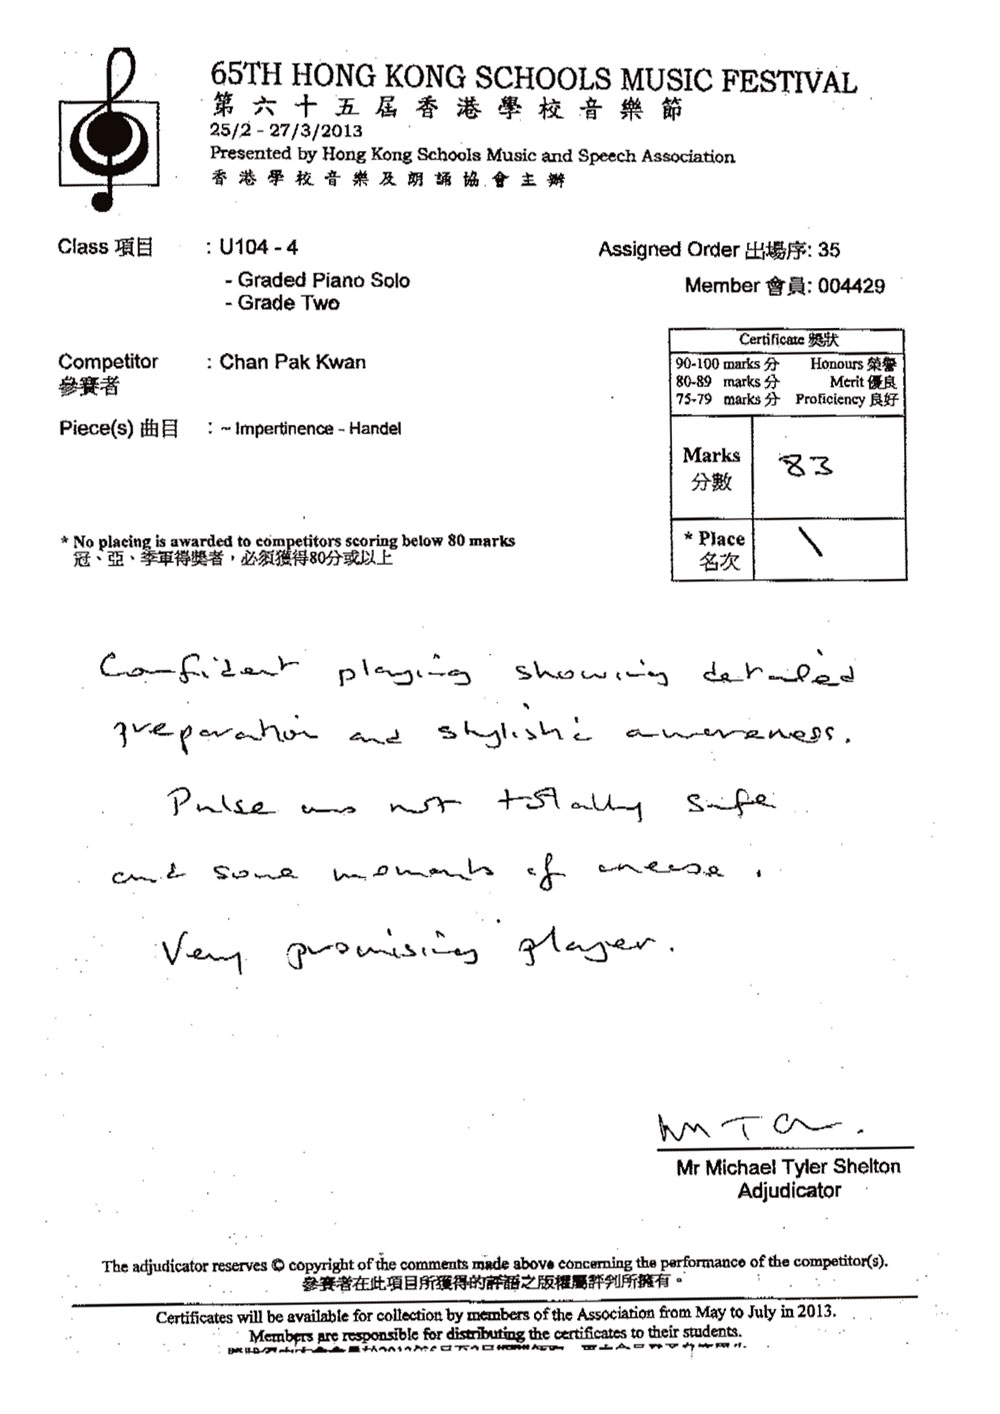 65TH HONG KONG SCHOOLS MUSIC FESTIVAL
第六十五屆香港學校音樂節
25/2 - 27/3/2013
Presented by Hong Kong Schools Music and Speech Association
香港學校音樂及朗誦協會主辦
Class 項目 : U104 - 4
- Graded Piano Solo
- Grade Two
Assigned Order 出場序: 35
Member 會員: 004429
Competitor : Chan Pak Kwan
參賽者
Piece(s) 曲目 : ~ Impertinence - Handel
Certificate 獎狀
90-100 marks 分 Honours 榮譽
80-89 marks 分 Merit 優良
75-79 marks 分 Proficiency 良好
Marks 83
分數
* Place \
名次
* No placing is awarded to competitors scoring below 80 marks
冠、亞、季軍得獎者，必須獲得80分或以上
Confident playing showing detailed
preparation and stylistic awareness.
Pulse was not totally safe
and some moments of unease.
Very promising player.
Mr Michael Tyler Shelton
Adjudicator
The adjudicator reserves © copyright of the comments made above concerning the performance of the competitor(s).
參賽者在此項目所獲得的評語之版權屬評判所擁有。
Certificates will be available for collection by members of the Association from May to July in 2013.
Members are responsible for distributing the certificates to their students.